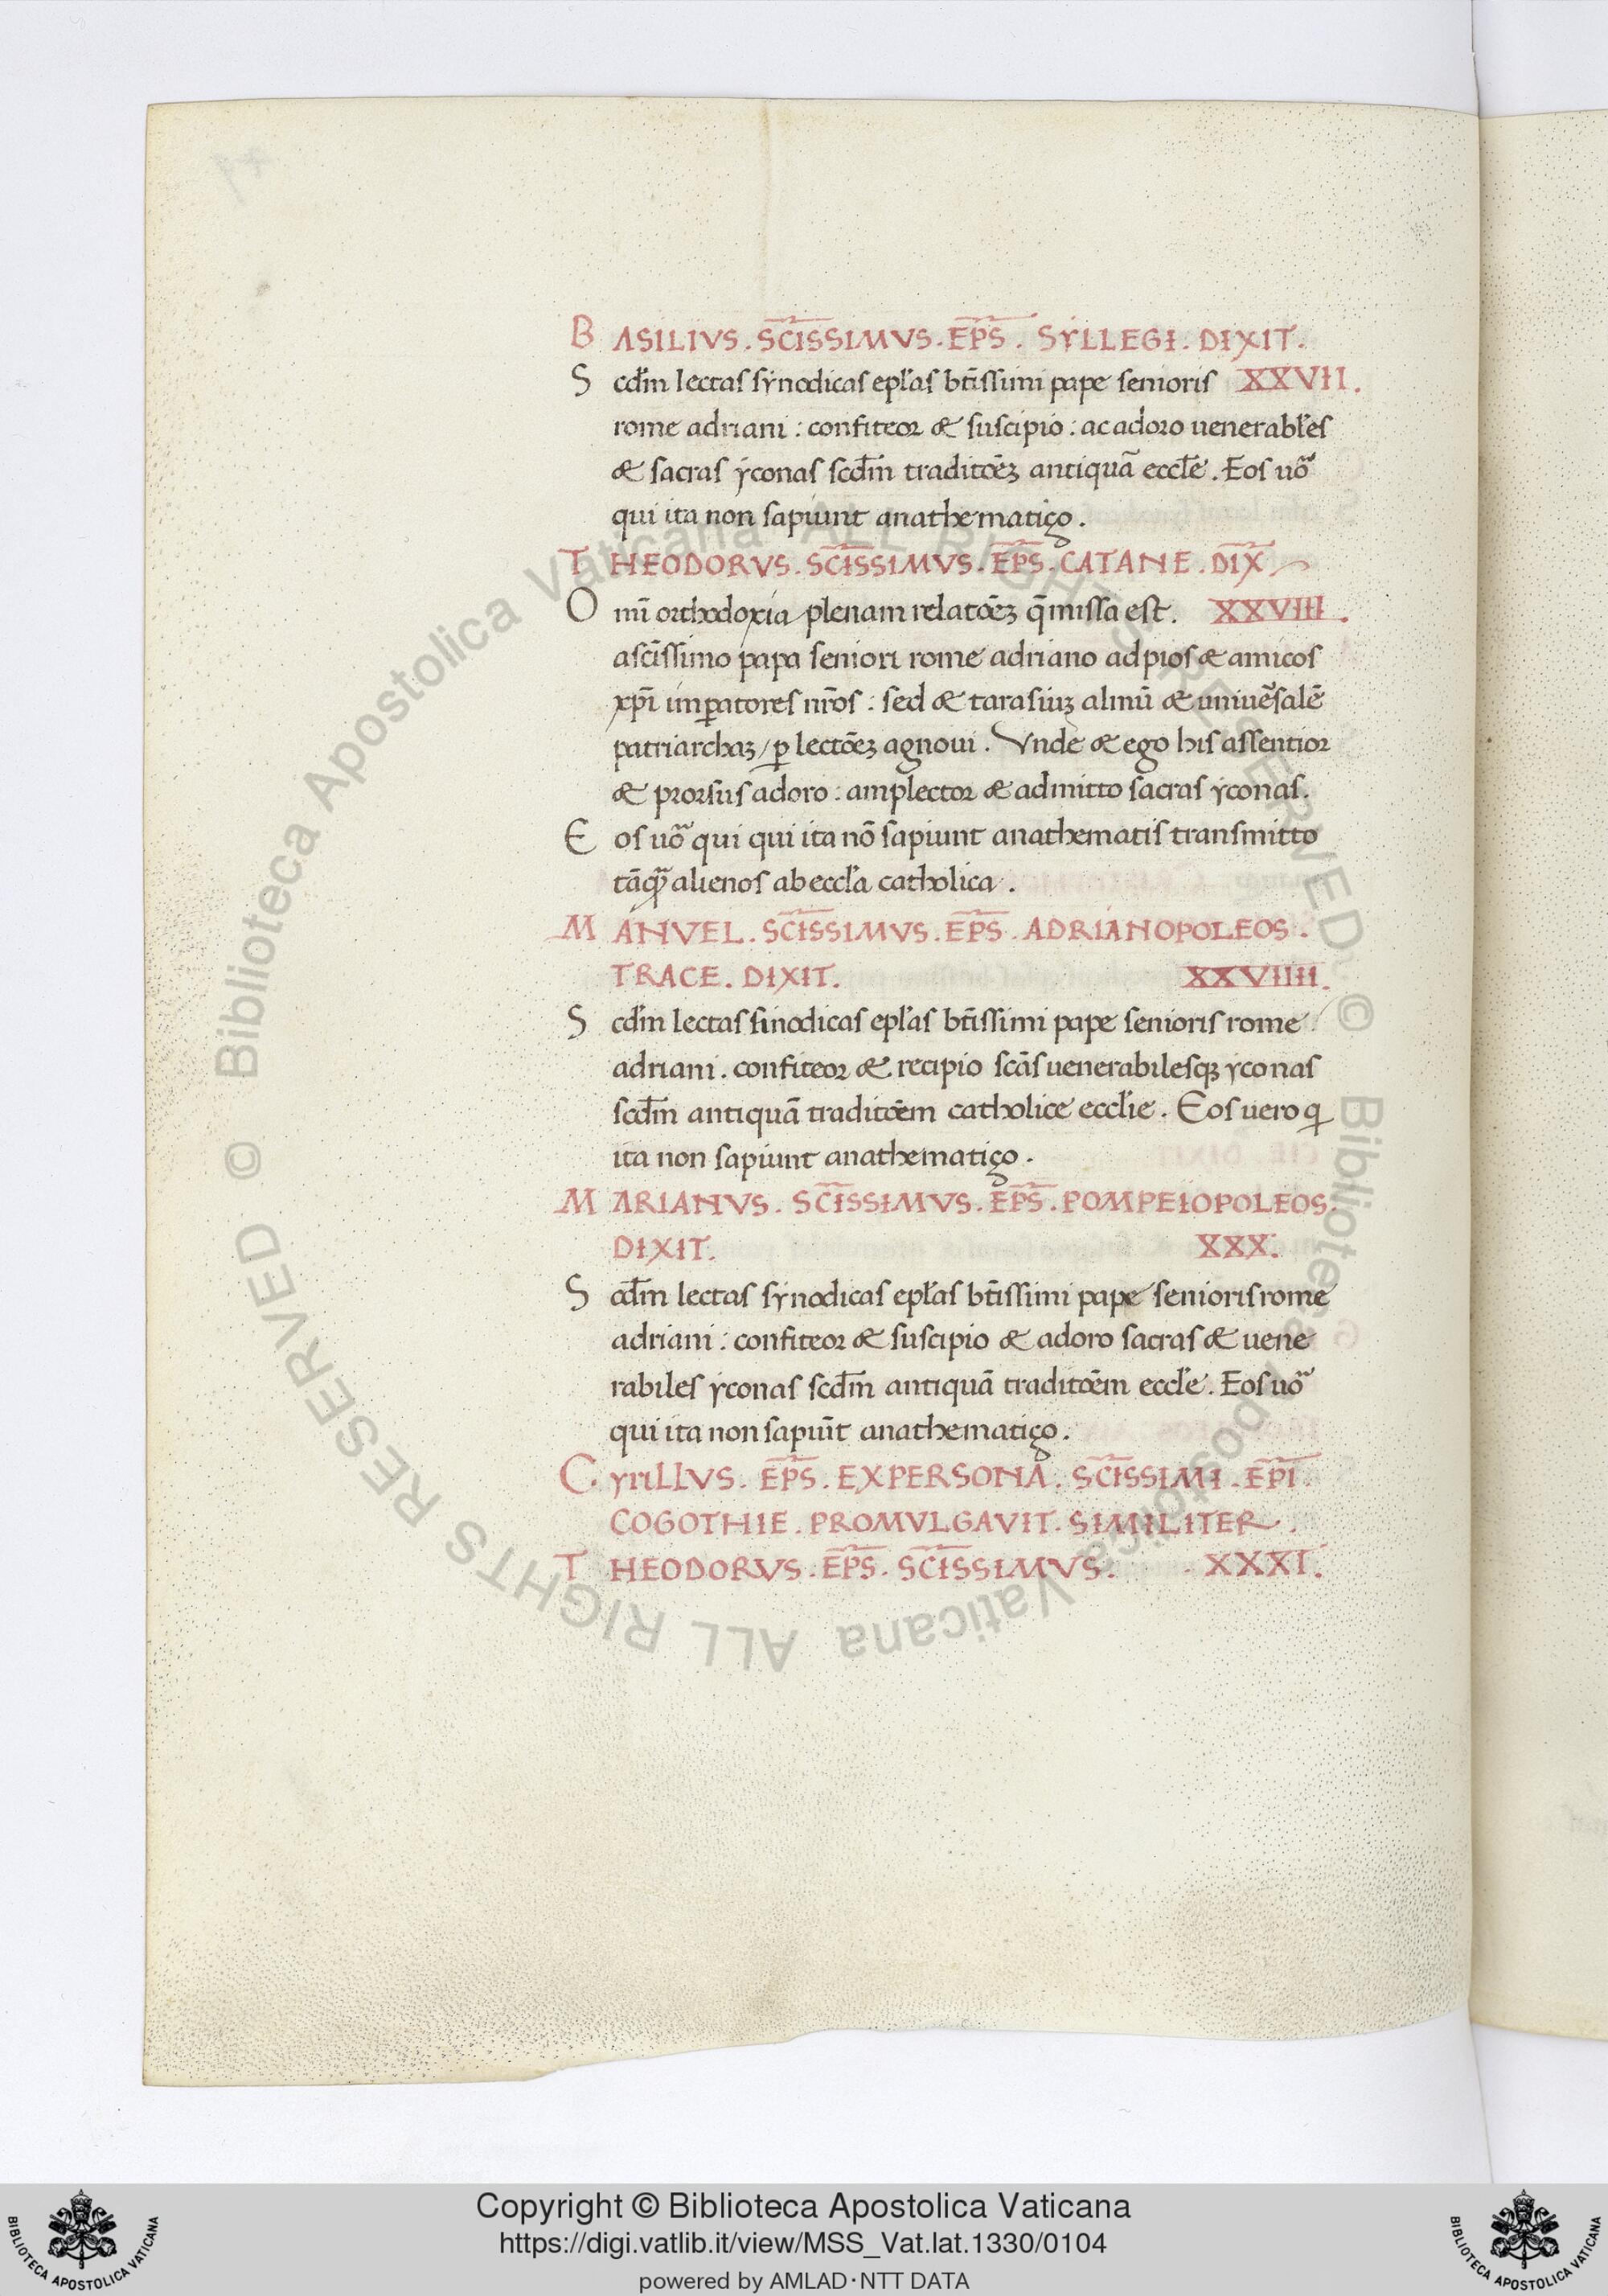 BASILIVS. SC̅ISSIMVS. EP̅S. SYLLEGI. DIXIT.
Scd̅m lectas sẏnodicas ep̅l̅as bt̅issimi pape senioris XXVII.
rome adriani : confiteor & suscipio : ac adoro uenerabl̅es
& sacras ẏconas scd̅m traditōeʒ antiquā eccl̅e. Eos uō
qui ita non sapiunt anathematiço.
THEODORVS. SC̅ISSIMVS. EP̅S. CATANE. DIX̅
Om̅i orthodoxia plenam relatōeʒ q̅ missa est. XXVIII.
a sc̅issimo papa seniori rome adriano ad pios & amicos
xp̅i imꝑatores nr̅os : sed & tarasiuʒ almū & uniuēsalē
patriarchaʒ / ꝑ lectōeʒ agnoui. Vnde & ego his assentior
& prorsus adoro : amplector & admitto sacras yconas.
Eos uō qui qui ita nō sapiunt anathematis transmitto
tāq̅ alienos ab eccl̅a catholica.
MANVEL. SC̅ISSIMVS. EP̅S. ADRIANOPOLEOS.
TRACE. DIXIT. XXVIIII.
Scd̅m lectas sinodicas ep̅l̅as bt̅issimi pape senioris rome
adriani. confiteor & recipio sc̅as uenerabilesqʒ yconas
scd̅m antiquā traditōem catholice eccl̅ie. Eos uero q̇
ita non sapiunt anathematiço.
MARIANVS. SC̅ISSIMVS. EP̅S. POMPEIOPOLEOS.
DIXIT. XXX.
Scd̅m lectas sẏnodicas ep̅l̅as bt̅issimi pape senioris rome
adriani : confiteor & suscipio & adoro sacras & uene
rabiles ẏconas scd̅m antiquā traditōem eccl̅e. Eos uō
qui ita non sapiūt anathematiço.
CYRILLVS. EP̅S. EX PERSONA. SC̅ISSIMI. EP̅I.
COGOTHIE. PROMVLGAVIT. SIMILITER.
THEODORVS. EP̅S. SC̅ISSIMVS. XXXI.
© Biblioteca Apostolica Vaticana ALL RIGHTS RESERVED
© Biblioteca Apostolica Vaticana ALL RIGHTS RESERVED
Copyright © Biblioteca Apostolica Vaticana
https://digi.vatlib.it/view/MSS_Vat.lat.1330/0104
powered by AMLAD·NTT DATA
BIBLIOTECA APOSTOLICA VATICANA
BIBLIOTECA APOSTOLICA VATICANA